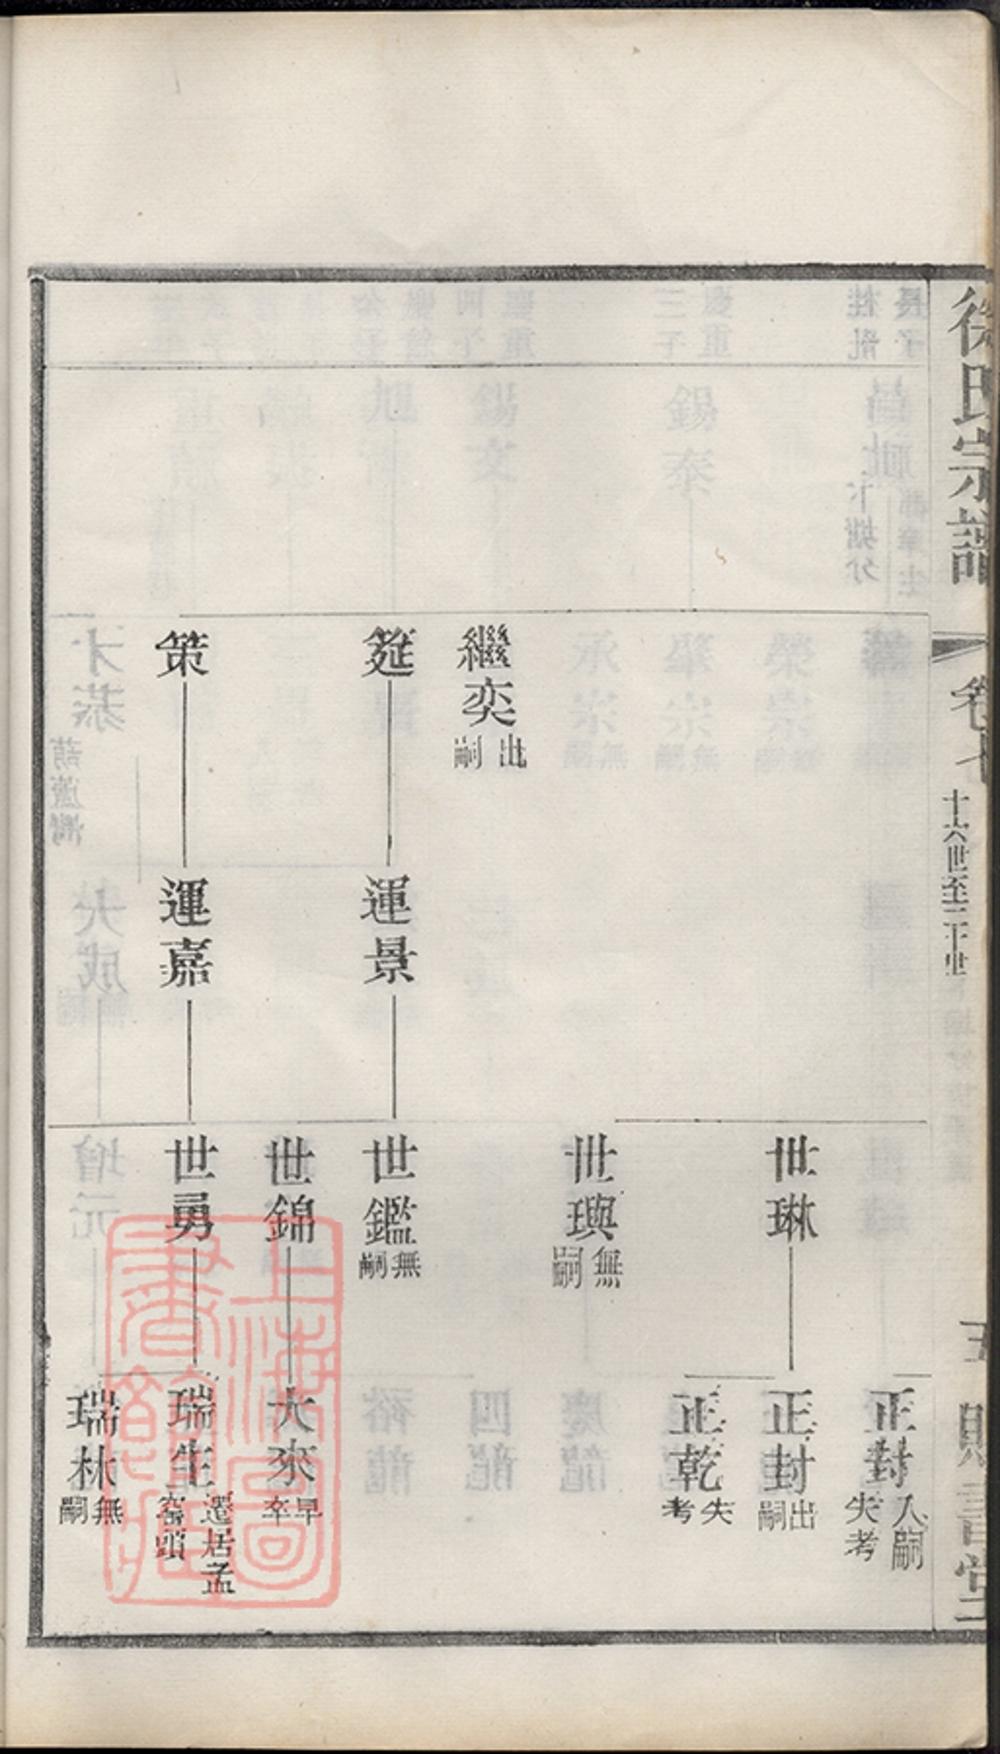 徐氏宗譜
卷七
十六世至二十世
五
賜書堂
繼奕 出嗣
筵
策
運景
運嘉
世琳
世璵 無嗣
世鑑 無嗣
世錦
世勇
正封 入嗣失考
正封 出嗣
正乾 失考
大來 早卒
瑞生 遷居孟窰頭
瑞林 無嗣
上海圖書館藏